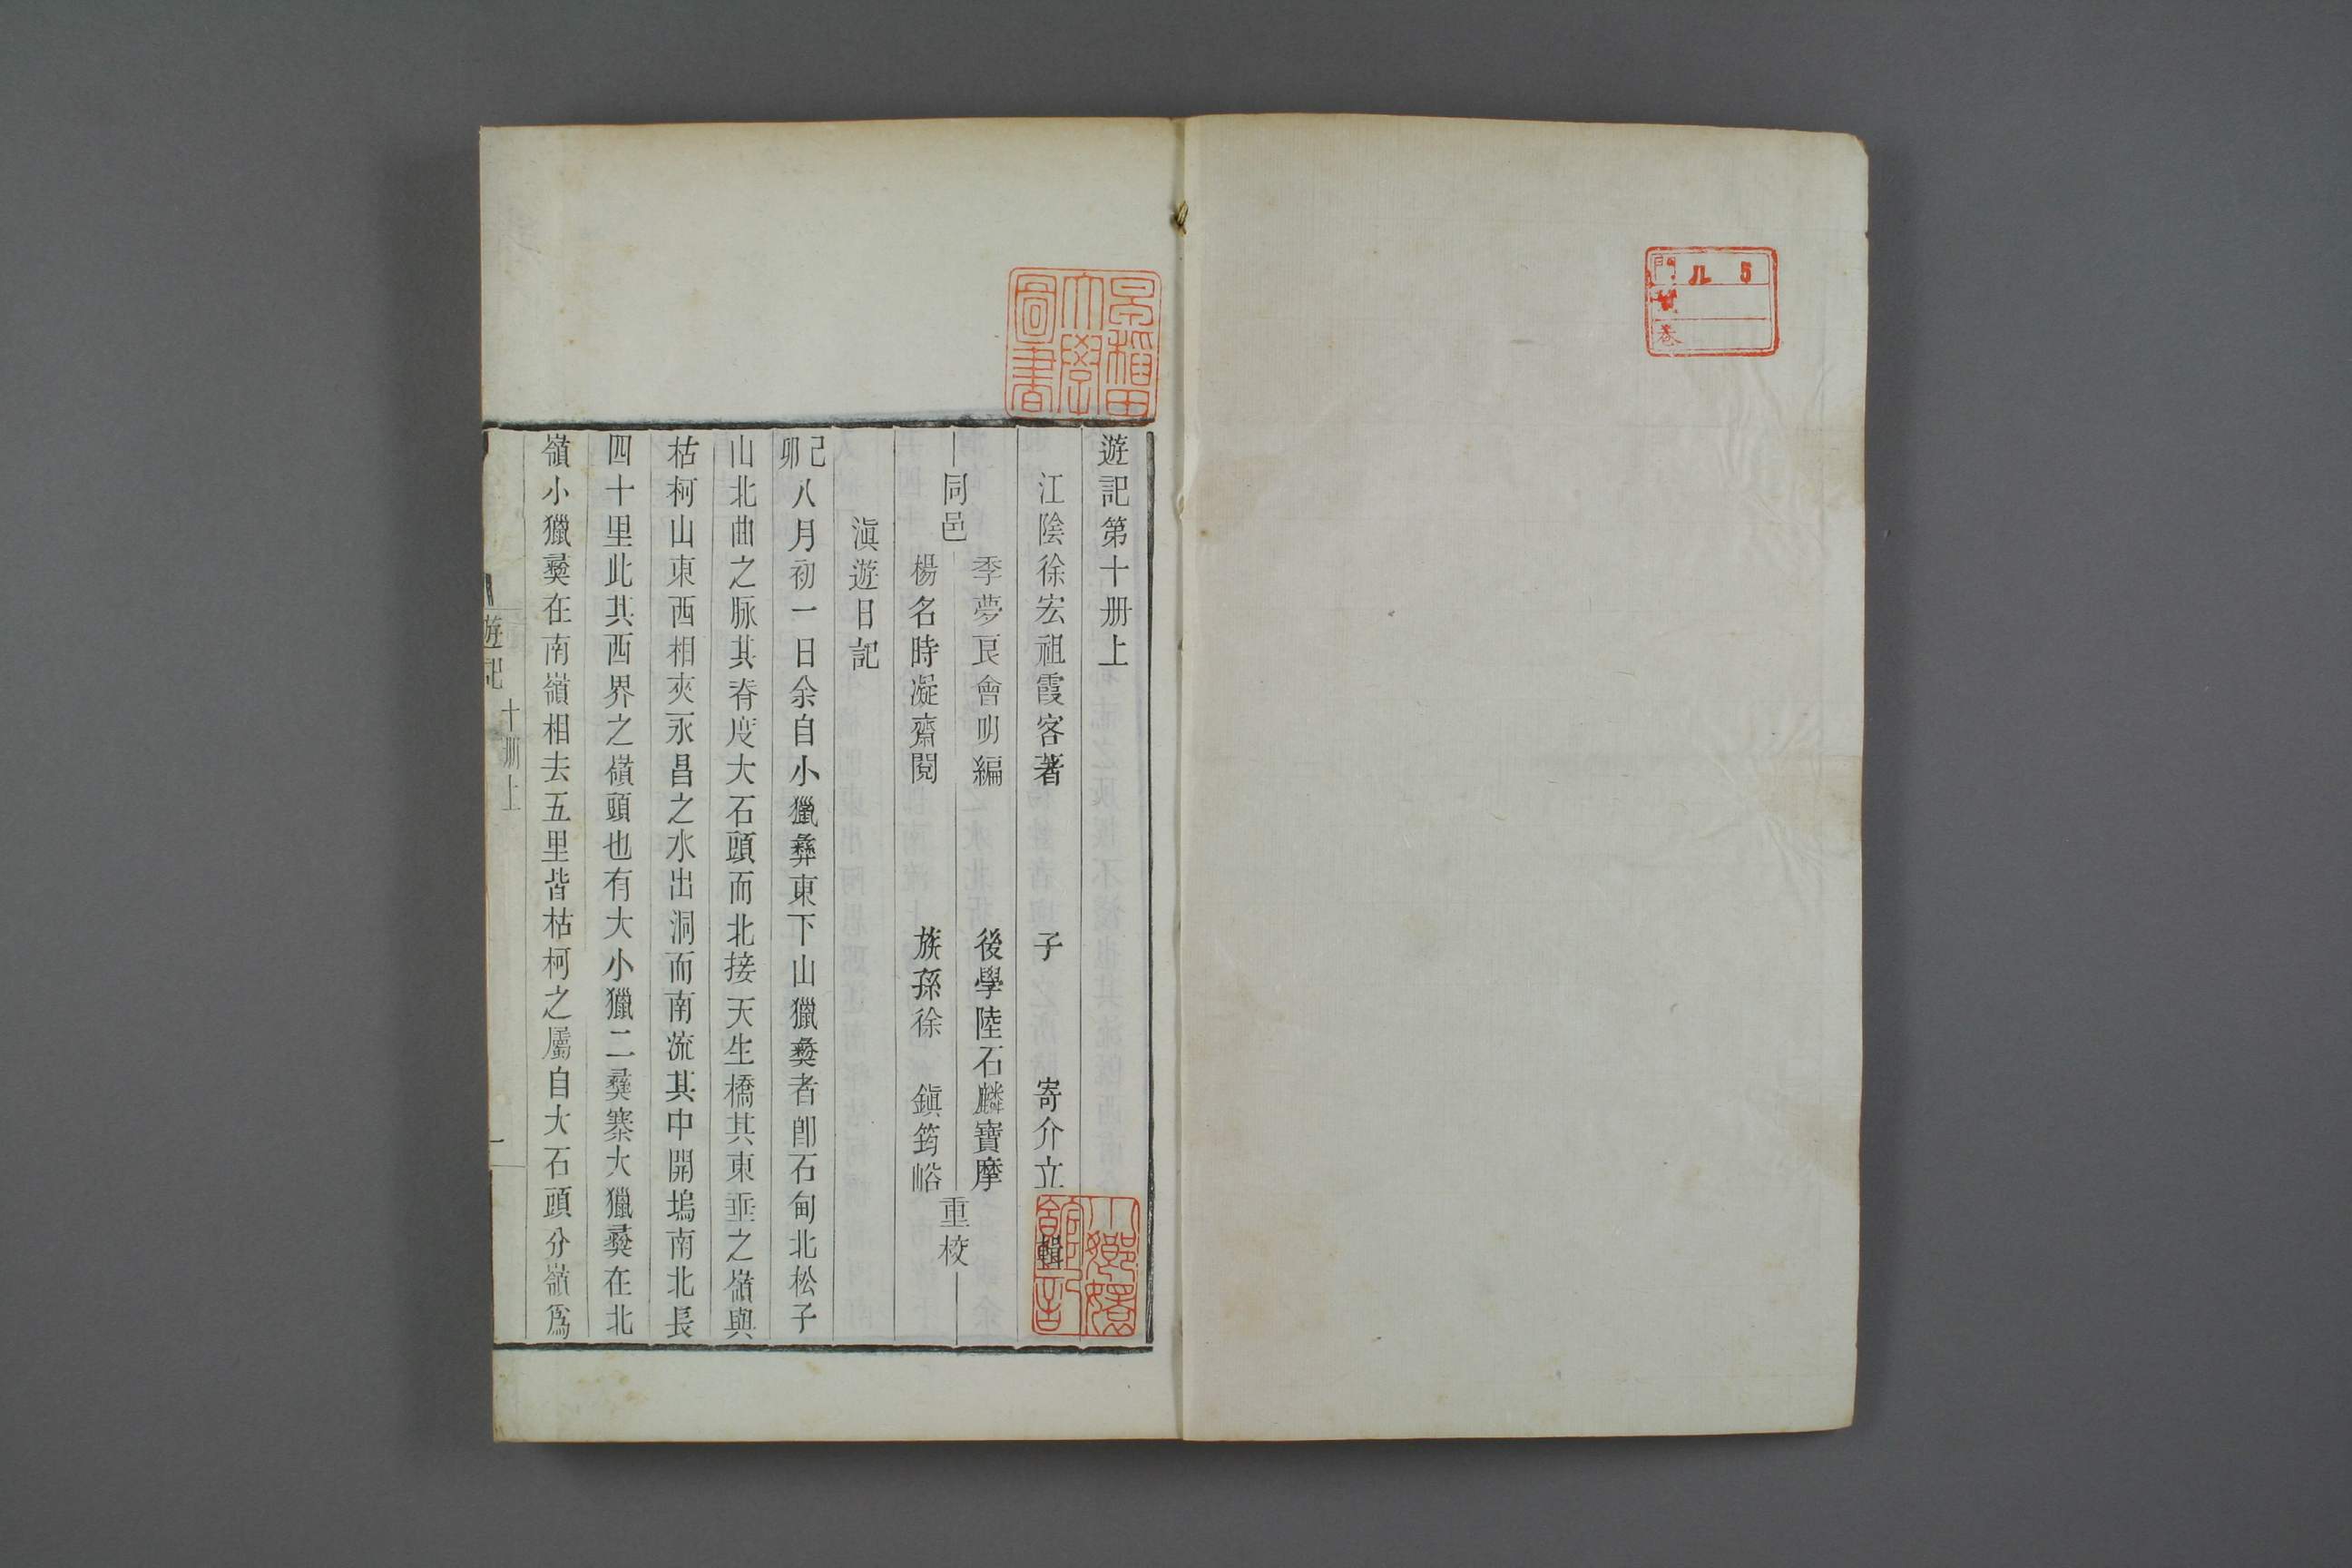 門 ル 5
巻
早稲田大學圖書
遊記第十册上
江陰徐宏祖霞客著 子 寄介立輯
同邑
季夢良會明編 後學陸石麟寶摩
楊名時凝齋閱 族孫徐 鎭筠峪
重校
滇遊日記
己卯八月初一日余自小獵彝東下山獵彝者卽石甸北松子
山北曲之脉其脊度大石頭而北接天生橋其東垂之嶺與
枯柯山東西相夾永昌之水出洞而南流其中開塢南北長
四十里此其西界之嶺頭也有大小獵二彝寨大獵彝在北
嶺小獵彝在南嶺相去五里皆枯柯之屬自大石頭分嶺爲
遊記 十册上 一